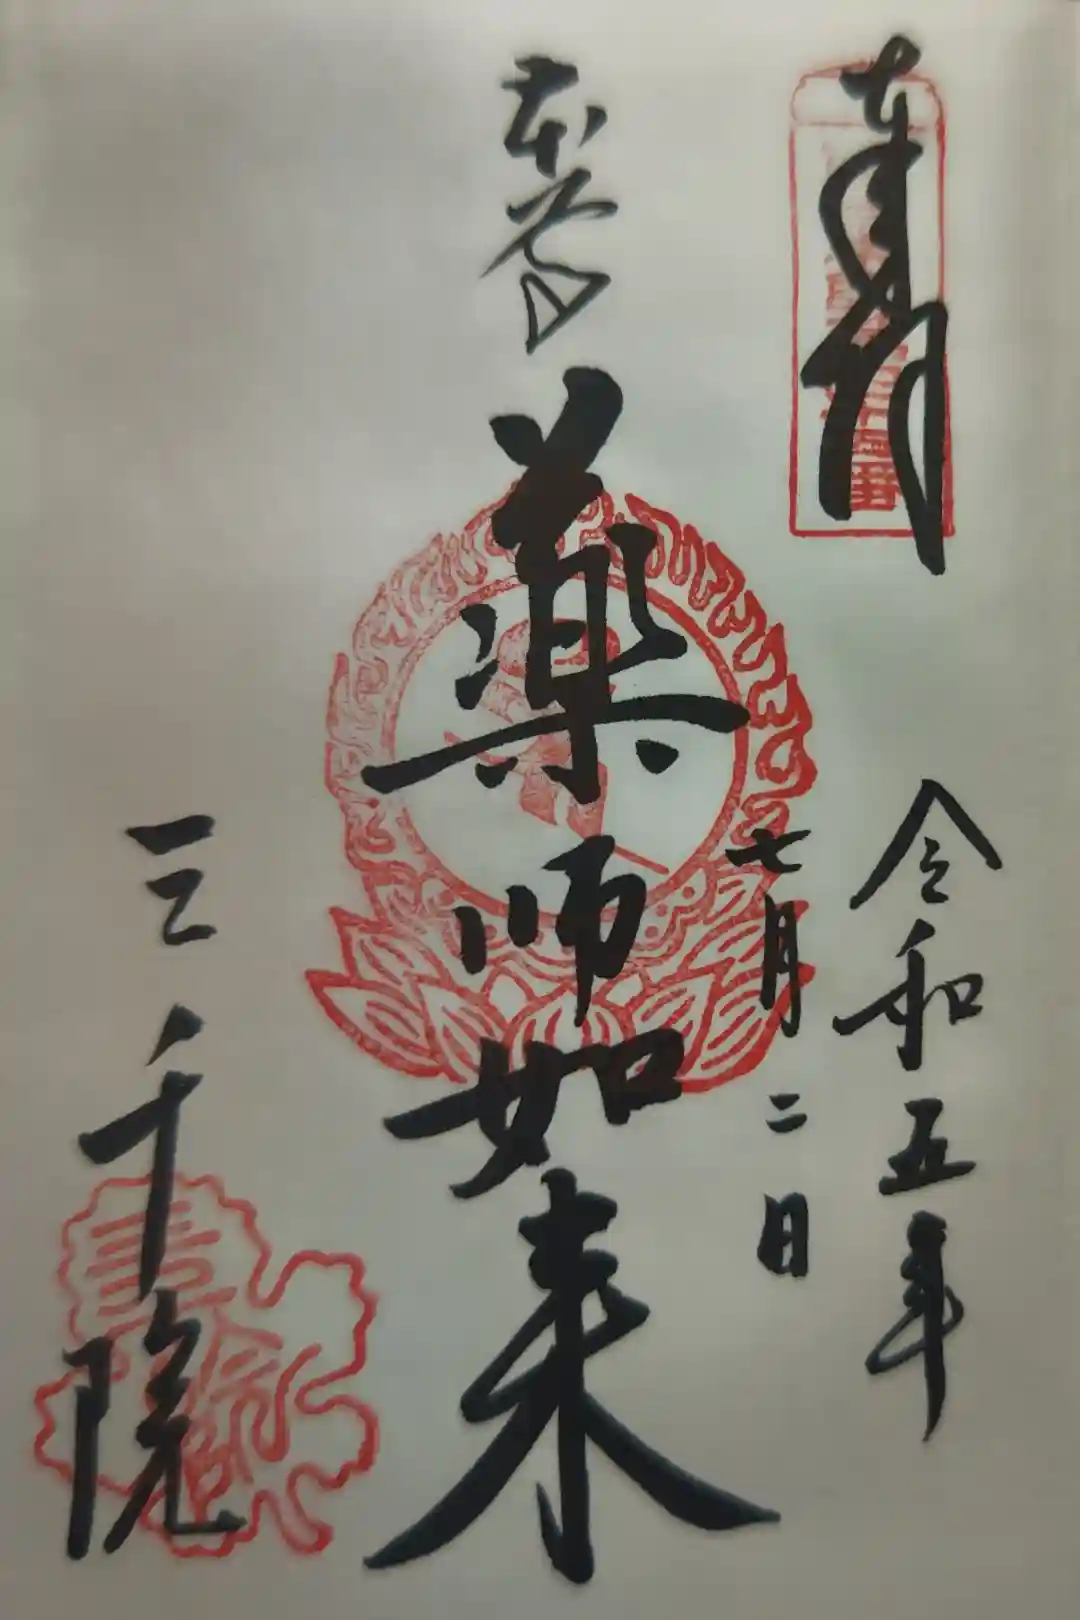 奉拝
令和五年
七月二日
本尊
薬師如来
三千院